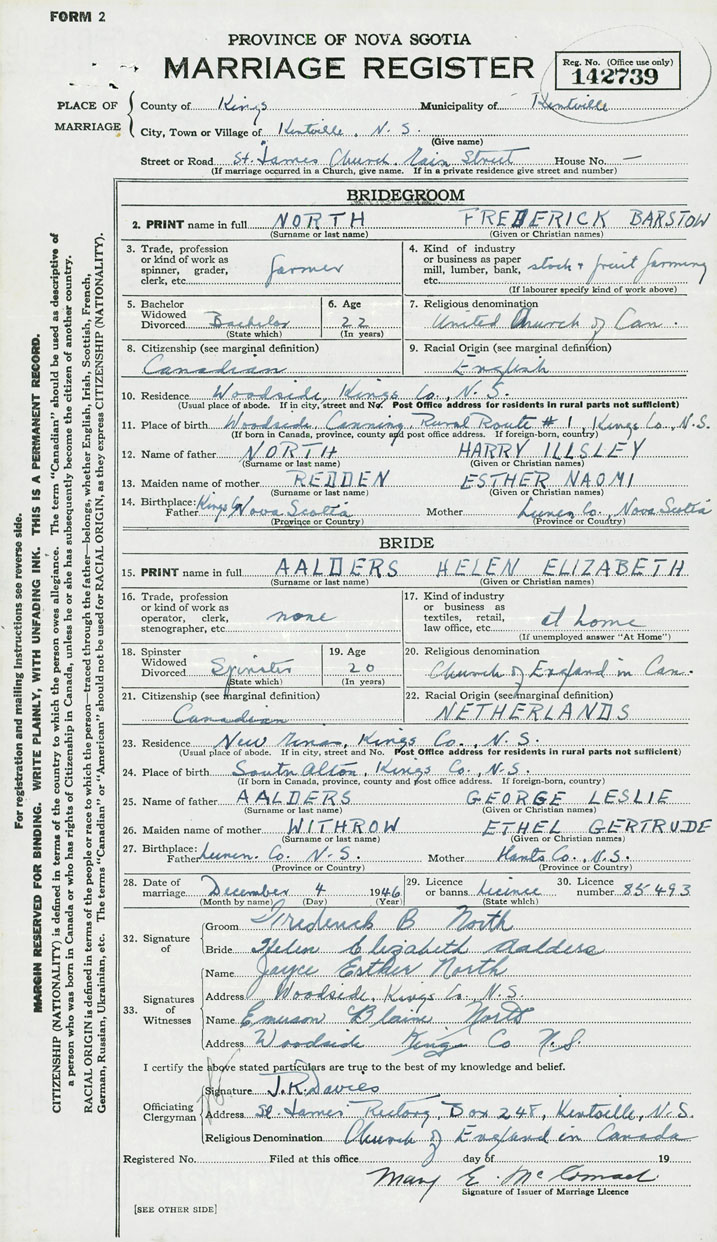 FORM 2
PROVINCE OF NOVA SCOTIA
MARRIAGE REGISTER
Reg. No. (Office use only)
142739
PLACE OF MARRIAGE
County of Kings Municipality of Kentville
City, Town or Village of Kentville, N. S.
(Give name)
Street or Road St. James Church, Main Street House No. —
(If marriage occurred in a Church, give name. If in a private residence give street and number)
BRIDEGROOM
2. PRINT name in full NORTH FREDERICK BARSTOW
(Surname or last name) (Given or Christian names)
3. Trade, profession or kind of work as spinner, grader, clerk, etc. farmer
4. Kind of industry or business as paper mill, lumber, bank, etc. stock & fruit farming
(If labourer specify kind of work above)
5. Bachelor Widowed Divorced Bachelor
(State which)
6. Age 22
(In years)
7. Religious denomination
United Church of Can.
8. Citizenship (see marginal definition)
Canadian
9. Racial Origin (see marginal definition)
English
10. Residence Woodside, Kings Co., N. S.
(Usual place of abode. If in city, street and No. Post Office address for residents in rural parts not sufficient)
11. Place of birth Woodside, Canning, Rural Route # 1, Kings Co., N. S.
(If born in Canada, province, county and post office address. If foreign-born, country)
12. Name of father NORTH HARRY ILLSLEY
(Surname or last name) (Given or Christian names)
13. Maiden name of mother REDDEN ESTHER NAOMI
(Surname or last name) (Given or Christian names)
14. Birthplace: Father Kings Co Nova Scotia Mother Lunen. Co., Nova Scotia
(Province or Country) (Province or Country)
BRIDE
15. PRINT name in full AALDERS HELEN ELIZABETH
(Surname or last name) (Given or Christian names)
16. Trade, profession or kind of work as operator, clerk, stenographer, etc. none
17. Kind of industry or business as textiles, retail, law office, etc. at home
(If unemployed answer "At Home")
18. Spinster Widowed Divorced Spinster
(State which)
19. Age 20
(In years)
20. Religious denomination
Church of England in Can.
21. Citizenship (see marginal definition)
Canadian
22. Racial Origin (see marginal definition)
NETHERLANDS
23. Residence New Minas, Kings Co., N. S.
(Usual place of abode. If in city, street and No. Post Office address for residents in rural parts not sufficient)
24. Place of birth South Alton, Kings Co., N. S.
(If born in Canada, province, county and post office address. If foreign-born, country)
25. Name of father AALDERS GEORGE LESLIE
(Surname or last name) (Given or Christian names)
26. Maiden name of mother WITHROW ETHEL GERTRUDE
(Surname or last name) (Given or Christian names)
27. Birthplace: Father Lunen. Co. N. S. Mother Hants Co., N. S.
(Province or Country) (Province or Country)
28. Date of marriage December 4 1946
(Month by name) (Day) (Year)
29. Licence or banns licence
(State which)
30. Licence number 85493
32. Signature of
Groom Frederick B North
Bride Helen Elizabeth Aalders
33. Signatures of Witnesses
Name Joyce Esther North
Address Woodside, Kings Co., N. S.
Name Emerson Blaine North
Address Woodside Kings Co N. S.
I certify the above stated particulars are true to the best of my knowledge and belief.
Officiating Clergyman
Signature J. R. Davies
Address St. James Rectory, Box 248, Kentville, N. S.
Religious Denomination Church of England in Canada
Registered No. Filed at this office day of 19
Mary E. McCormack
Signature of Issuer of Marriage Licence
[SEE OTHER SIDE]
For registration and mailing instructions see reverse side.
MARGIN RESERVED FOR BINDING. WRITE PLAINLY, WITH UNFADING INK. THIS IS A PERMANENT RECORD.
CITIZENSHIP (NATIONALITY) is defined in terms of the country to which the person owes allegiance. The term "Canadian" should be used as descriptive of
a person who was born in Canada or who has rights of Citizenship in Canada, unless he or she has subsequently become the citizen of another country.
RACIAL ORIGIN is defined in terms of the people or race to which the person—traced through the father—belongs, whether English, Irish, Scottish, French,
German, Russian, Ukrainian, etc. The terms "Canadian" or "American" should not be used for RACIAL ORIGIN, as they express CITIZENSHIP (NATIONALITY).